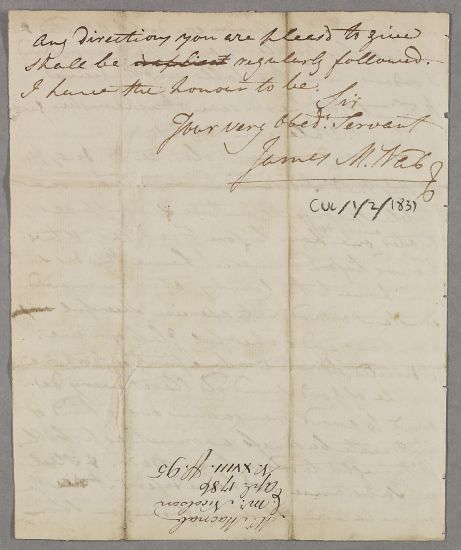 Any directions you are pleasd to give
shall be implicit regularly followed.
I have the honour to be
Sir
Your very Obedt. Servant
James McNab
CUL/1/2/183)
Mr. Macnab
& Mr. Nicolson
Apl. 1786
N. XVIII. f. 95